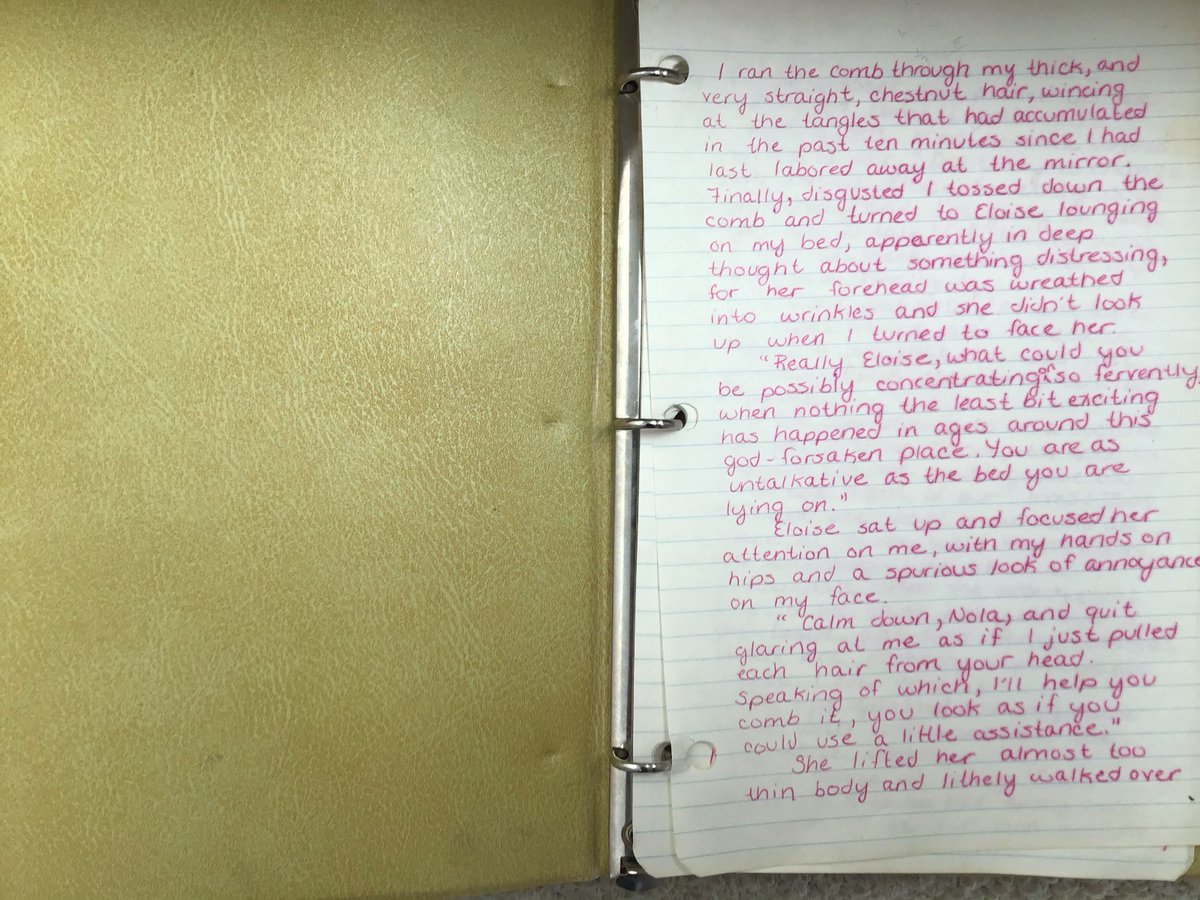 I ran the comb through my thick, and
very straight, chestnut hair, wincing
at the tangles that had accumulated
in the past ten minutes since I had
last labored away at the mirror.
Finally, disgusted I tossed down the
comb and turned to Eloise lounging
on my bed, apparently in deep
thought about something distressing,
for her forehead was wreathed
into wrinkles and she didn't look
up when I turned to face her.
"Really Eloise, what could you
be possibly concentrating on so fervently,
when nothing the least bit exciting
has happened in ages around this
god-forsaken place. You are as
untalkative as the bed you are
lying on."
Eloise sat up and focused her
attention on me, with my hands on
hips and a spurious look of annoyance
on my face.
"Calm down, Nola, and quit
glaring at me as if I just pulled
each hair from your head.
Speaking of which, I'll help you
comb it, you look as if you
could use a little assistance."
She lifted her almost too
thin body and lithely walked over